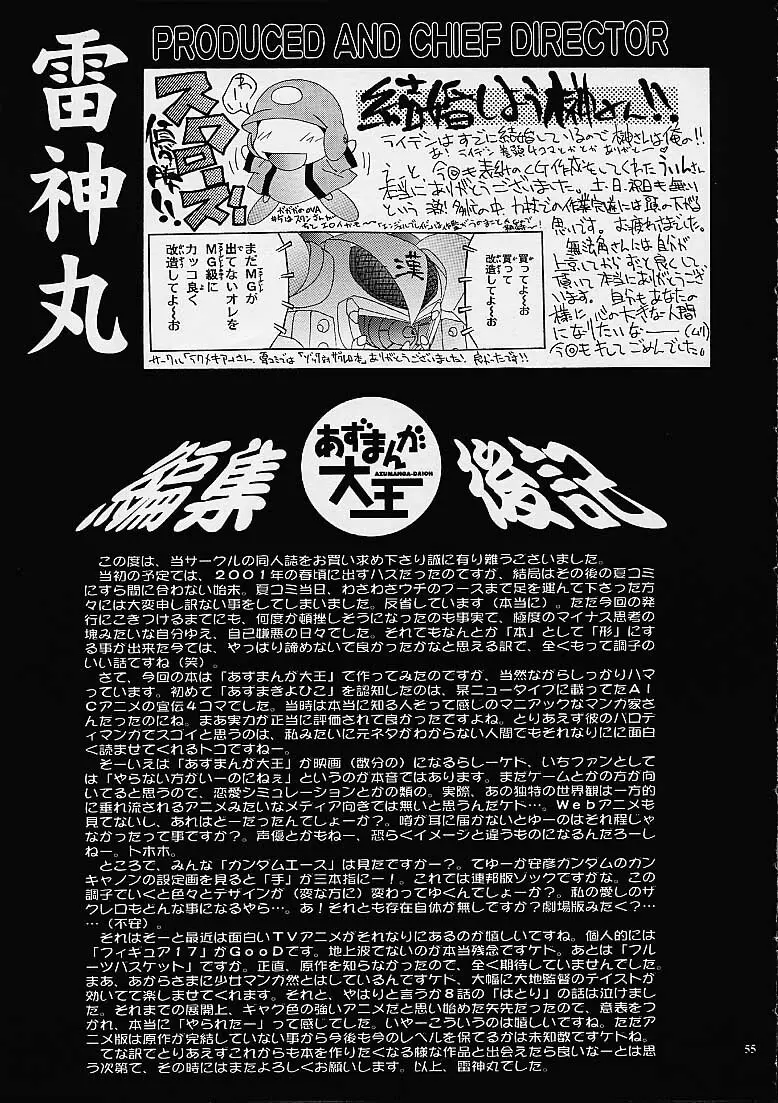 雷神丸
PRODUCED AND CHIEF DIRECTOR
結婚しよう榊さん!!
ライデンはすでに結婚しているので榊さんは俺の!!
えーと、今回も表紙のCG作業をしてくれたういんさん
本当にありがとうございました。土・日、祝日も無い
思いです。お疲れさまでした。
無法角さんには自分が
頂いて本当にありがとうござ
います。自分もあなたの
様に、心の大きな人間
になりたいなーー(ムリ)
今回もキしてごめんでした。
漢
買ってよ〜お
買って
改造してよ〜お
まだMGが
出てないオレを
MG級に
カッコ良く
改造してよ〜お
編集
あずまんが
AZUMANGA-DAIOH
大王
後記
この度は、当サークルの同人誌をお買い求め下さり誠に有り難うございました。
当初の予定では、2001年の春頃に出すハズだったのですが、結局はその後の夏コミ
にすら間に合わない始末。夏コミ当日、わざわざウチのブースまで足を運んで下さった方
々には大変申し訳ない事をしてしまいました。反省しています(本当に)。ただ今回の発
行にこぎつけるまでにも、何度か頓挫しそうになったのも事実で、極度のマイナス思考の
塊みたいな自分ゆえ、自己嫌悪の日々でした。それでもなんとか「本」として「形」にす
る事が出来た今では、やっぱり諦めないで良かったかなと思える訳で、全くもって調子の
いい話ですね(笑)。
さて、今回の本は「あずまんが大王」で作ってみたのですが、当然ながらしっかりハマ
っています。初めて「あずまきよひこ」を認知したのは、某ニュータイプに載ってたAI
Cアニメの宣伝4コマでした。当時は本当に知る人ぞって感じのマニアックなマンガ家さ
んだったのにね。まあ実力が正当に評価されて良かったですよね。とりあえず彼のパロデ
ィマンガでスゴイと思うのは、私みたいに元ネタがわからない人間でもそれなりにに面白
く読ませてくれるトコですねー。
そーいえば「あずまんが大王」が映画(数分の)になるらしーケド、いちファンとして
は「やらない方がいーのにねぇ」というのが本音ではあります。まだゲームとかの方が向
いてると思うので、恋愛シミュレーションとかの類の。実際、あの独特の世界観は一方的
に垂れ流されるアニメみたいなメディア向きでは無いと思うんだケド…。Webアニメも
見てないし、あれはどーだったんでしょーか?。噂が耳に届かないとゆーのはそれ程じゃ
なかったって事ですか?。声優とかもねー、恐らくイメージと違うものになるんだろーし
ねー。トホホ。
ところで、みんな「ガンダムエース」は見たですかー?。てゆーか安彦ガンダムのガン
キャノンの設定画を見ると「手」が三本指にー!。これでは連邦版ゾックですがな。この
調子でいくと色々とデザインが(変な方に)変わってゆくんでしょーか?。私の愛しのザ
クレロもどんな事になるやら…。あ!それとも存在自体が無しですか?劇場版みたく?…
…(不安)。
それはそーと最近は面白いTVアニメがそれなりにあるのが嬉しいですね。個人的には
「フィギュア17」がGooDです。地上波でないのが本当残念ですケド。あとは「フル
ーツバスケット」ですか。正直、原作を知らなかったので、全く期待していませんでした。
まあ、あからさまに少女マンガ然とはしているんですケド、大幅に大地監督のテイストが
効いてて楽しませてくれます。それと、やはりと言うか8話の「はとり」の話は泣けまし
た。それまでの展開上、ギャグ色の強いアニメだと思い始めた矢先だったので、意表をつ
かれ、本当に「やられたー」って感じでした。いやーこういうのは嬉しいですね。ただア
ニメ版は原作が完結していない事から今後も今のレベルを保てるかは未知数ですケドね。
てな訳でとりあえずこれからも本を作りたくなる様な作品と出会えたら良いなーとは思
う次第で、その時にはまたよろしくお願いします。以上、雷神丸でした。
55